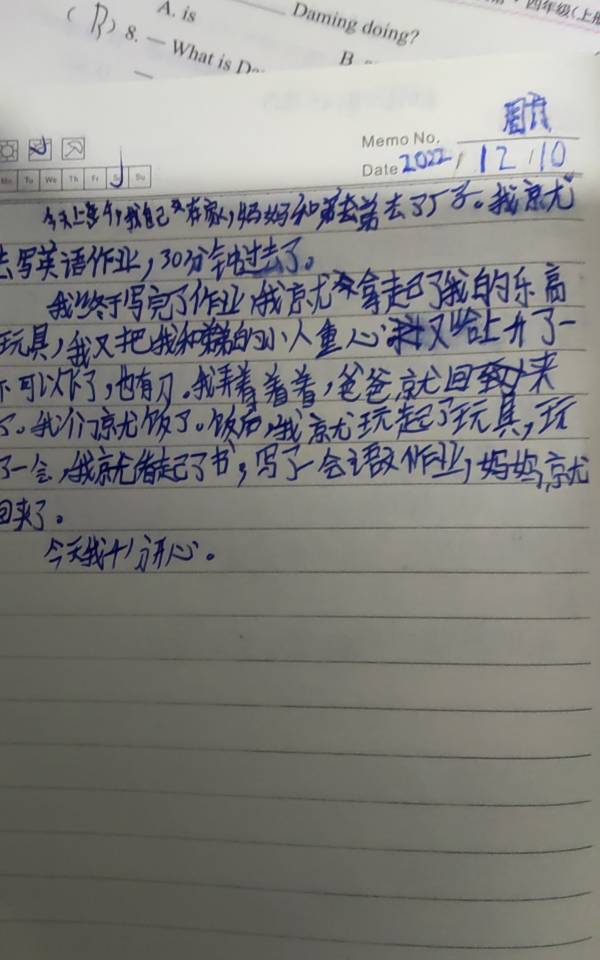 四年级(上册
A. is
Daming doing?
(B) 8. — What is Da
B
Memo No. 周六
Date 2022 / 12 / 10
Mo Tu We Th Fr Sa Su
今天上午,我自己在家,妈妈和弟弟去了丁子。我就
去写英语作业,30分钟过去了。
我终于写完了作业,我就拿起了我的乐高
玩具,我又把我和弟弟的小人重心 又给上升了一
下可以下了,也有刀。我弄着着着,爸爸就回来
了。我们就饭了。饭后,我就玩起了玩具,玩
了一会,我就看起了书,写了一会语文作业,妈妈就
回来了。
今天我十分开心。